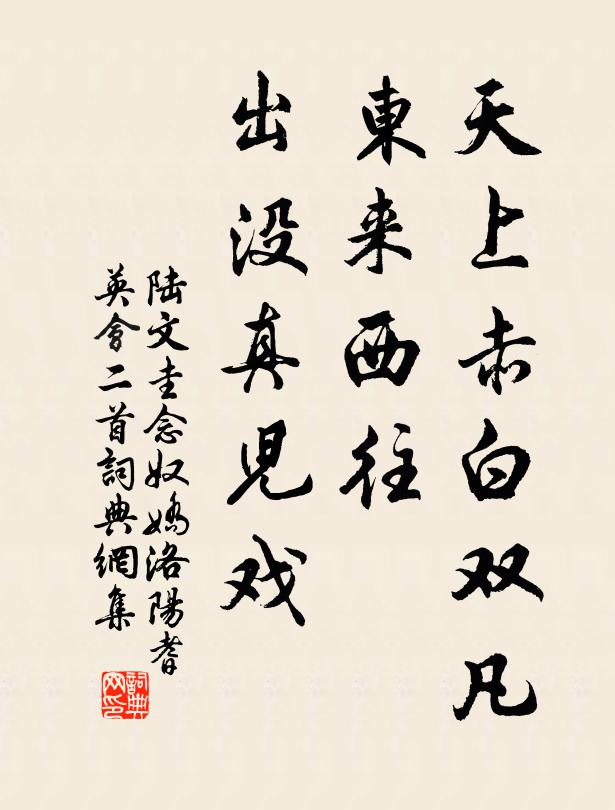 天上赤白双凡
東来西往
出没真児戏
陆文圭念奴嬌洛陽耆
英會二首詞典網集
詞典
网印